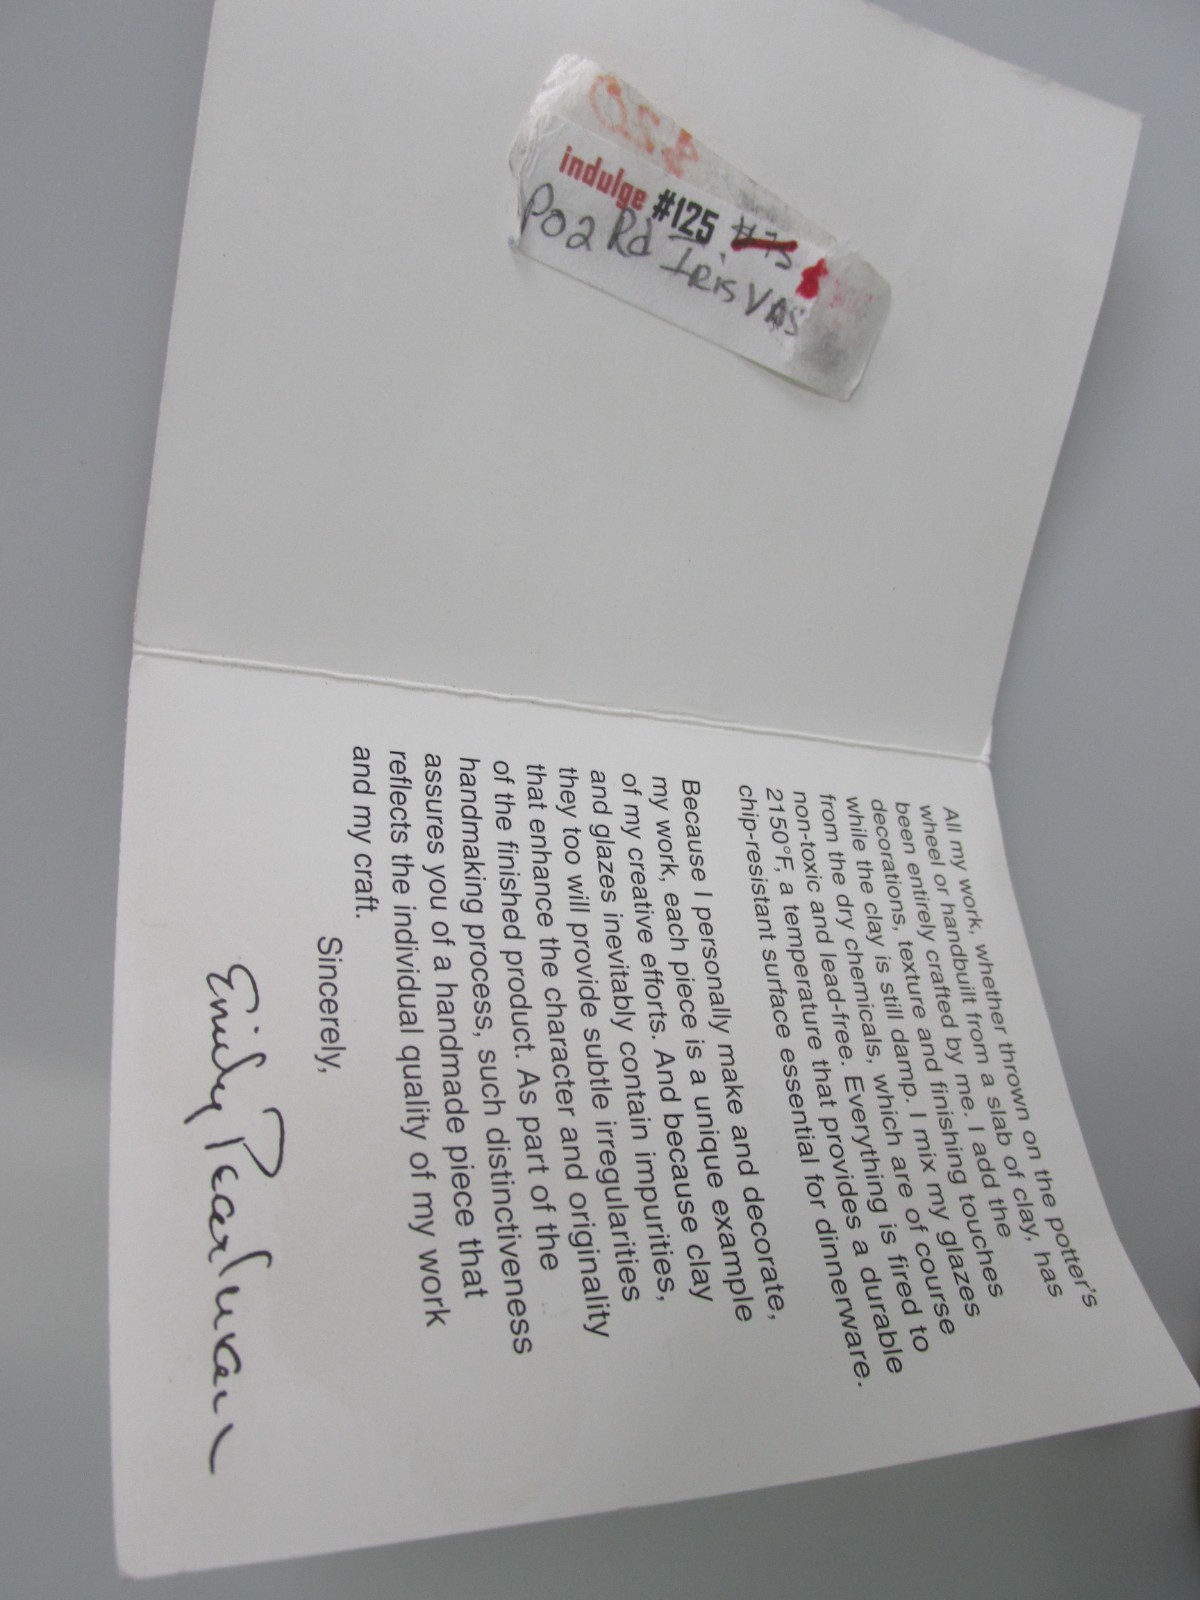 indulge #125 #75
PO2 Rd IRis VAS
All my work, whether thrown on the potter's
wheel or handbuilt from a slab of clay, has
been entirely crafted by me. I add the
decorations, texture and finishing touches
while the clay is still damp. I mix my glazes
from the dry chemicals, which are of course
non-toxic and lead-free. Everything is fired to
2150°F, a temperature that provides a durable
chip-resistant surface essential for dinnerware.
Because I personally make and decorate,
my work, each piece is a unique example
of my creative efforts. And because clay
and glazes inevitably contain impurities,
they too will provide subtle irregularities
that enhance the character and originality
of the finished product. As part of the
handmaking process, such distinctiveness
assures you of a handmade piece that
reflects the individual quality of my work
and my craft.
Sincerely,
Emily Pearlman